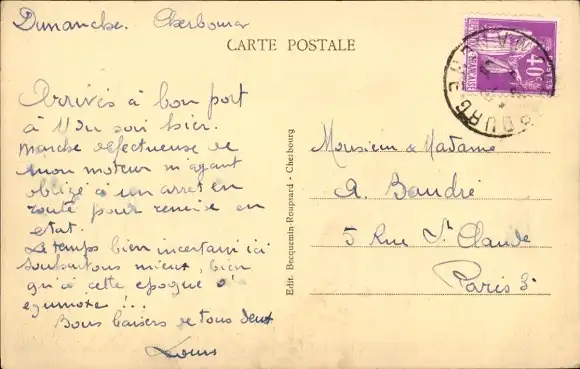 Dimanche. Cherbourg
CARTE POSTALE
Arrivés à bon port
à 11h du soir hier.
Marche défectueuse de
mon moteur m'ayant
obligé à un arrêt en
route pour remise en
état.
Le temps bien incertain ici
souhaitons mieux, bien
qu'à cette époque d'
équinoxe !...
Bons baisers de tous deux
Louis
Edit. Becquemin-Roupsard - Cherbourg
Monsieur & Madame
A. Baudré
5 Rue St Claude
Paris 3e
40c